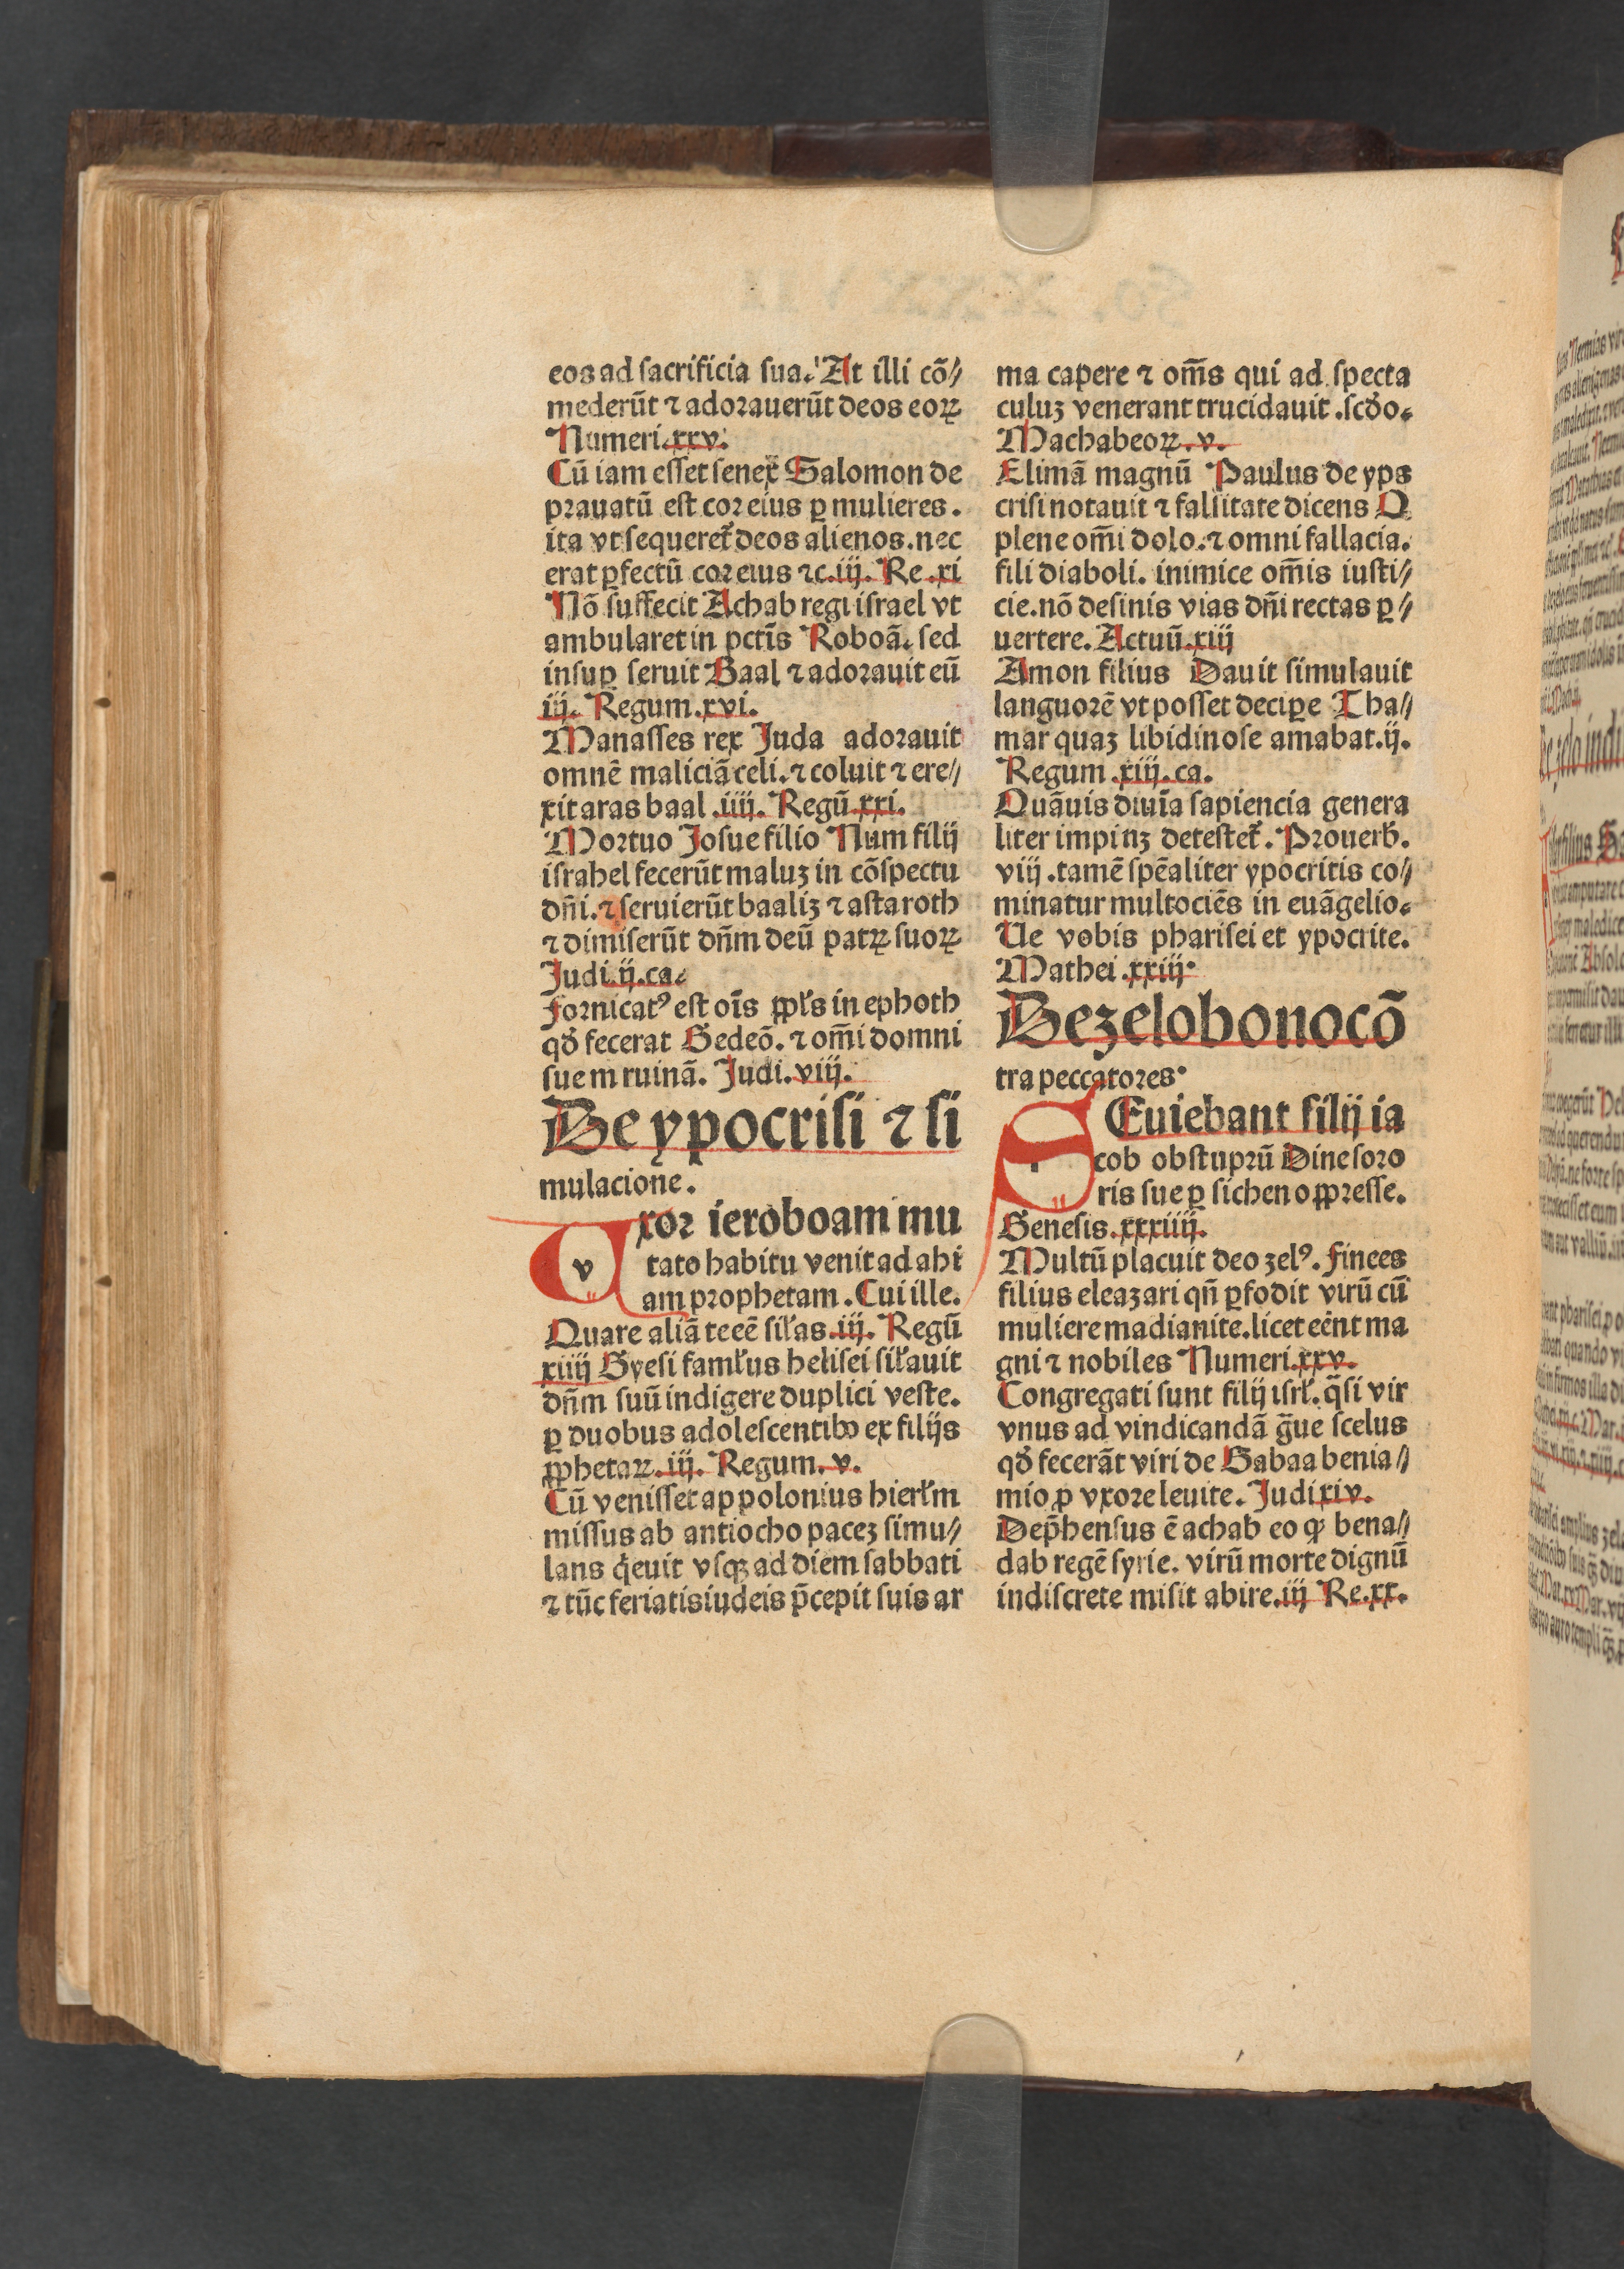 eos ad sacrificia sua. At illi cō//
mederūt ⁊ adorauerūt deos eoꝝ
Numeri.xxv.
Cū iam esset senex Salomon de
prauatū est cor eius ꝑ mulieres.
ita vt sequeret̉ deos alienos. nec
erat ꝑfectū cor eius ⁊c.iij. Re.xi
Nō suffecit Achab regi israel vt
ambularet in pctīs Roboā. sed
insuꝑ seruit Baal ⁊ adorauit eū
iij. Regum.xvi.
Manasses rex Juda adorauit
omnē maliciā celi. ⁊ coluit ⁊ ere//
xit aras baal .iiij. Regū.xxi.
Mortuo Josue filio Num filij
israhel fecerūt maluꝫ in cōspectu
dn̄i. ⁊ seruierūt baaliꝫ ⁊ astaroth
⁊ dimiserūt dn̄m deū patꝝ suoꝝ
Judi.ij.ca.
Fornicatꝰ est oīs ꝓpl̓s in ephoth
qd̓ fecerat Gedeō. ⁊ om̄i domni
sue in ruinā. Judi.viij.
De ypocrisi ⁊ si
mulacione.
Uxor ieroboam mu
tato habitu venit ad ahi
am prophetam. Cui ille.
Quare aliā te eē sil̓as.iij. Regū
xiiij Gyesi faml̓us helisei sil̓auit
dn̄m suū indigere duplici veste.
ꝑ duobus adolescentibꝰ ex filijs
ꝓphetaꝝ.iij. Regum.v.
Cū venisset appolonius hierl̓m
missus ab antiocho paceꝫ simu//
lans q̇euit vsqꝫ ad diem sabbati
⁊ tūc feriatis iudeis p̄cepit suis ar
ma capere ⁊ om̄s qui ad specta
culuꝫ venerant trucidauit .scd̓o.
Machabeoꝝ.v.
Elimā magnū Paulus de yps
crisi notauit ⁊ falsitate dicens O
plene om̄i dolo. ⁊ omni fallacia.
fili diaboli. inimice om̄is iusti//
cie. nō desinis vias dn̄i rectas ꝑ//
uertere. Actuū.xiij
Amon filius Dauit simulauit
languorē vt posset deciꝑe Tha//
mar quaꝫ libidinose amabat.ij.
Regum.xiij.ca.
Quāuis diuīa sapiencia genera
liter impinꝫ detestet̉. Prouerb̓.
viij. tamē spēaliter ypocritis co//
minatur multociēs in euāgelio.
Ue vobis pharisei et ypocrite.
Mathei .xxiij.
De zelo bono cō
tra peccatores.
SEuiebant filij ia
cob ob stuprū Dine soro
ris sue ꝑ sichen oppresse.
Genesis.xxxiiij.
Multū placuit deo zelꝰ. Finees
filius eleazari qn̄ ꝑfodit virū cū
muliere madianite. licet eēnt ma
gni ⁊ nobiles Numeri.xxv.
Congregati sunt filij isrl̓. q̄si vir
vnus ad vindicandā ḡue scelus
qd̓ fecerāt viri de Gabaa benia//
mio ꝑ vxore leuite. Judi xiv.
Dep̄hensus ē achab eo ꝙ bena//
dab regē syrie. virū morte dignū
indiscrete misit abire.iij Re.xx.